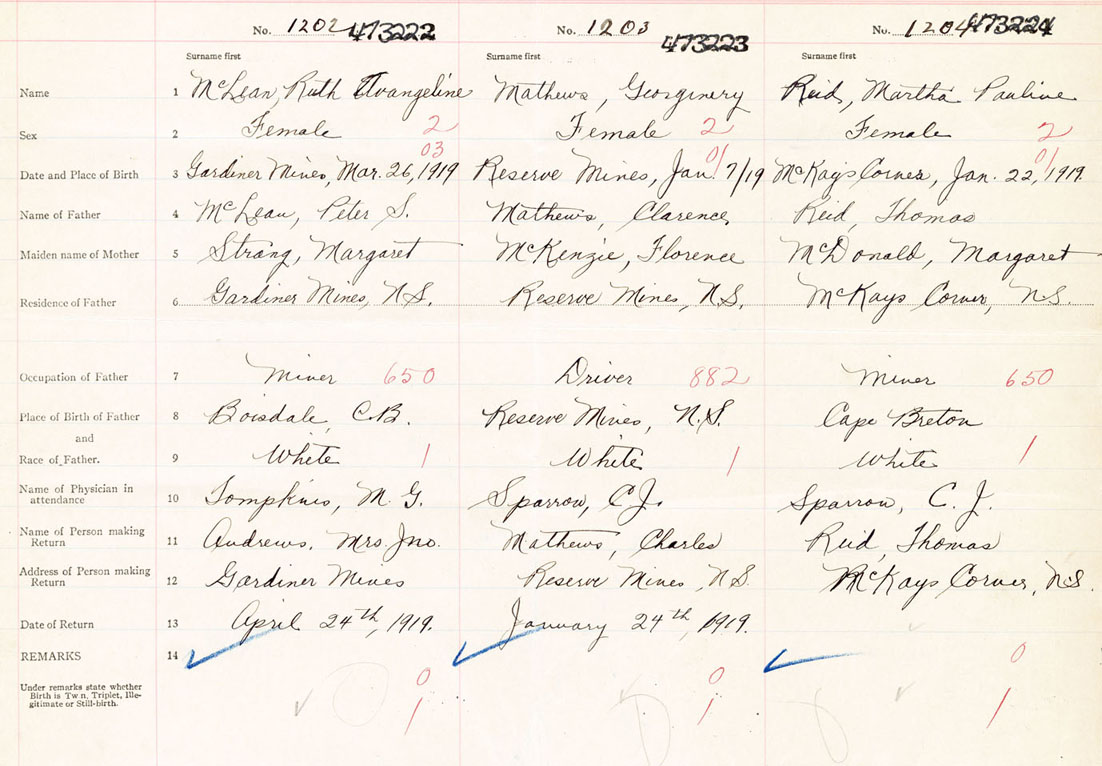 No. 1202 473222 No. 1203 473223 No. 1204 473224
Surname first Surname first Surname first
Name 1 McLean, Ruth Evangeline Mathews, Georginery Reid, Martha Pauline
Sex 2 Female 2 Female 2 Female 2
03 01 01
Date and Place of Birth 3 Gardiner Mines, Mar. 26, 1919 Reserve Mines, Jan. 7/19 McKays Corner, Jan. 22, 1919.
Name of Father 4 McLean, Peter S. Mathews, Clarence Reid, Thomas
Maiden name of Mother 5 Strang, Margaret McKenzie, Florence McDonald, Margaret
Residence of Father 6 Gardiner Mines, N.S. Reserve Mines, N.S. McKays Corner, N.S.
Occupation of Father 7 Miner 650 Driver 882 Miner 650
Place of Birth of Father 8 Boisdale, C.B. Reserve Mines, N.S. Cape Breton
and
Race of Father. 9 White 1 White 1 White 1
Name of Physician in
attendance 10 Tompkins, M. G. Sparrow, C.J. Sparrow, C. J.
Name of Person making
Return 11 Andrews, Mrs. Jno. Mathews, Charles Reid, Thomas
Address of Person making
Return 12 Gardiner Mines Reserve Mines, N.S. McKays Corner, N.S.
Date of Return 13 April 24th, 1919. January 24th, 1919.
REMARKS 14
0 0 0
Under remarks state whether
Birth is Twin, Triplet, Ille-
gitimate or Still-birth.
1 1 1